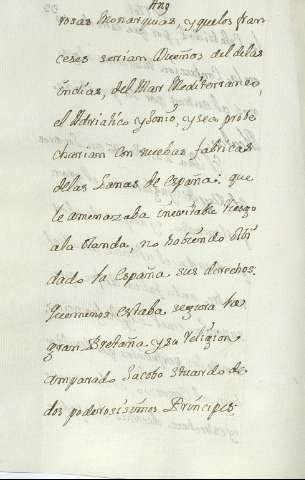 Ang
rosas Monarquias, y que los fran
ceses serian Dueños del de las
Indias, del Mar Mediterraneo,
el Adriatico y Jonio, y se aprobe
charian con nuebas fabricas
de las Lanas de España: que
le amenazaba inevitable riesgo
a la Olanda, no habiendo olbi
dado la España sus derechos.
Que menos estaba segura la
gran Bretaña y su religion
amparado Jacobo Stuardo de
dos poderosisimos Principes.